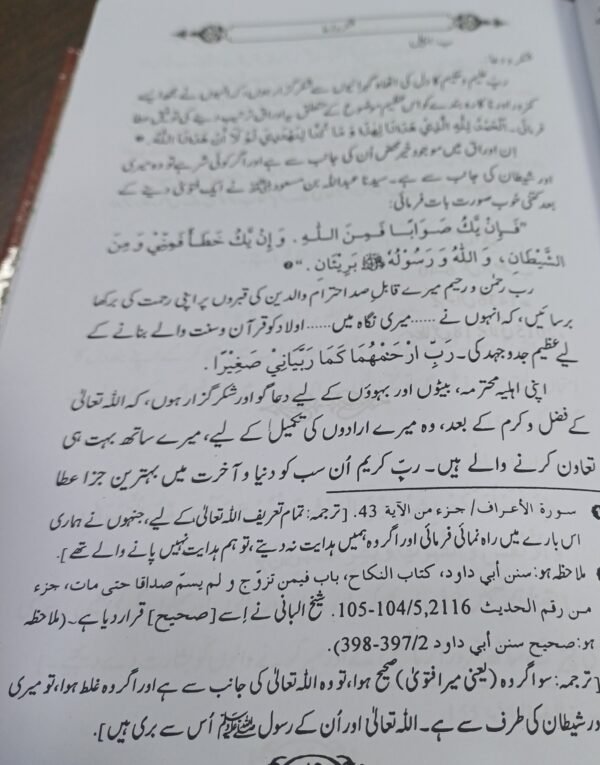 شکر و دعا
شکر و دعا:
ربّ علیم و حکیم کا دل کی اتھاہ گہرائیوں سے شکر گزار ہوں، کہ انہوں نے مجھ ایسے
کمزور اور ناکارہ بندے کو اس عظیم موضوع کے متعلق یہ اوراق ترتیب دینے کی توفیق عطا
فرمائی۔ اَلْحَمْدُ لِلّٰہِ الَّذِيْ هَدَانَا لِهٰذَا وَ مَا كُنَّا لِنَهْتَدِيَ لَوْ لَا أَنْ هَدَانَا اللّٰهُ. ❶
اِن اوراق میں موجود خیر محض اُن کی جانب سے ہے اور اگر کوئی شر ہے تو وہ میری
اور شیطان کی جانب سے ہے۔ سیدنا عبداللہ بن مسعود رضی اللہ عنہ نے ایک فتویٰ دینے کے
بعد کتنی خوب صورت بات فرمائی:
”فَإِنْ يَّكُ صَوَابًا فَمِنَ اللّٰهِ. وَإِنْ يَّكُ خَطَأً فَمِنِّيْ وَ مِنَ
الشَّيْطَانِ، وَ اللّٰهُ وَ رَسُوْلُهُ ﷺ بَرِيْئَانِ.“ ❷
رب رحمٰن و رحیم میرے قابلِ صد احترام والدین کی قبروں پر اپنی رحمت کی برکھا
برسائیں، کہ انہوں نے ...... میری نگاہ میں ...... اولاد کو قرآن و سنت والے بنانے کے
لیے عظیم جدوجہد کی۔ رَبِّ ارْحَمْهُمَا كَمَا رَبَّيَانِيْ صَغِيْرًا.
اپنی اہلیہ محترمہ، بیٹوں اور بہوؤں کے لیے دعا گو اور شکر گزار ہوں، کہ اللہ تعالیٰ
کے فضل و کرم کے بعد، وہ میرے ارادوں کی تکمیل کے لیے، میرے ساتھ بہت ہی
تعاون کرنے والے ہیں۔ ربِّ کریم اُن سب کو دنیا و آخرت میں بہترین جزا عطا
❶ سورة الأعراف/ جزء من الآية 43. [ترجمہ: تمام تعریف اللہ تعالیٰ کے لیے، جنہوں نے ہماری
اس بارے میں راہ نمائی فرمائی اور اگر وہ ہمیں ہدایت نہ دیتے، تو ہم ہدایت نہیں پانے والے تھے].
ملاحظہ ہو: سنن أبي داود، كتاب النكاح، باب فيمن تزوّج و لم يسمّ صداقا حتى مات، جزء
من رقم الحديث 2116، 104/5-105. شیخ البانی نے اِسے [صحیح] قرار دیا ہے۔ (ملاحظہ
ہو: صحيح سنن أبي داود 397/2-398).
[ترجمہ: سو اگر وہ (یعنی میرا فتویٰ) صحیح ہوا، تو وہ اللہ تعالیٰ کی جانب سے ہے اور اگر وہ غلط ہوا، تو میری
ور شیطان کی طرف سے ہے۔ اللہ تعالیٰ اور اُن کے رسول ﷺ اُس سے بری ہیں].